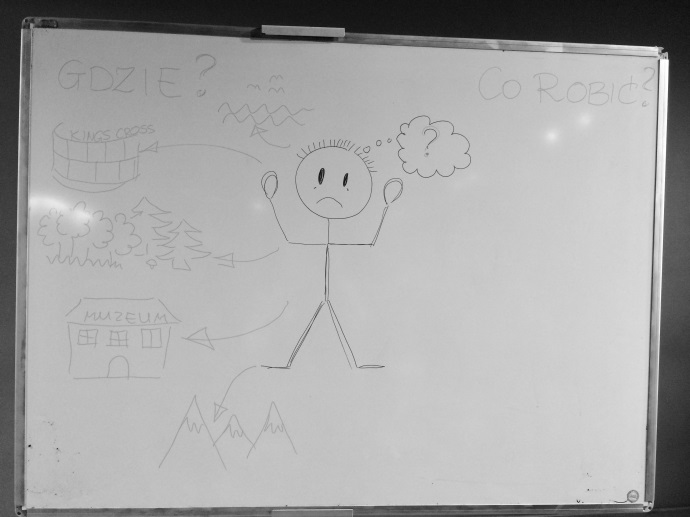 GDZIE?
CO ROBIĆ?
KINGS CROSS
?
MUZEUM